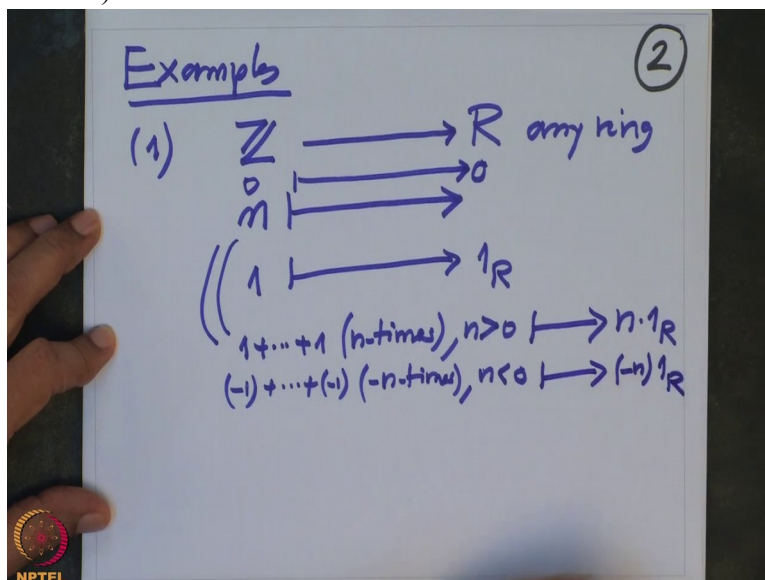 Examples
2
(1) ℤ ⟶ R any ring
0 ⟼ 0
n ⟼
1 ⟼ 1_R
1+⋯+1 (n-times), n>0 ⟼ n·1_R
(-1)+⋯+(-1) (-n-times), n<0 ⟼ (-n) 1_R
NPTEL